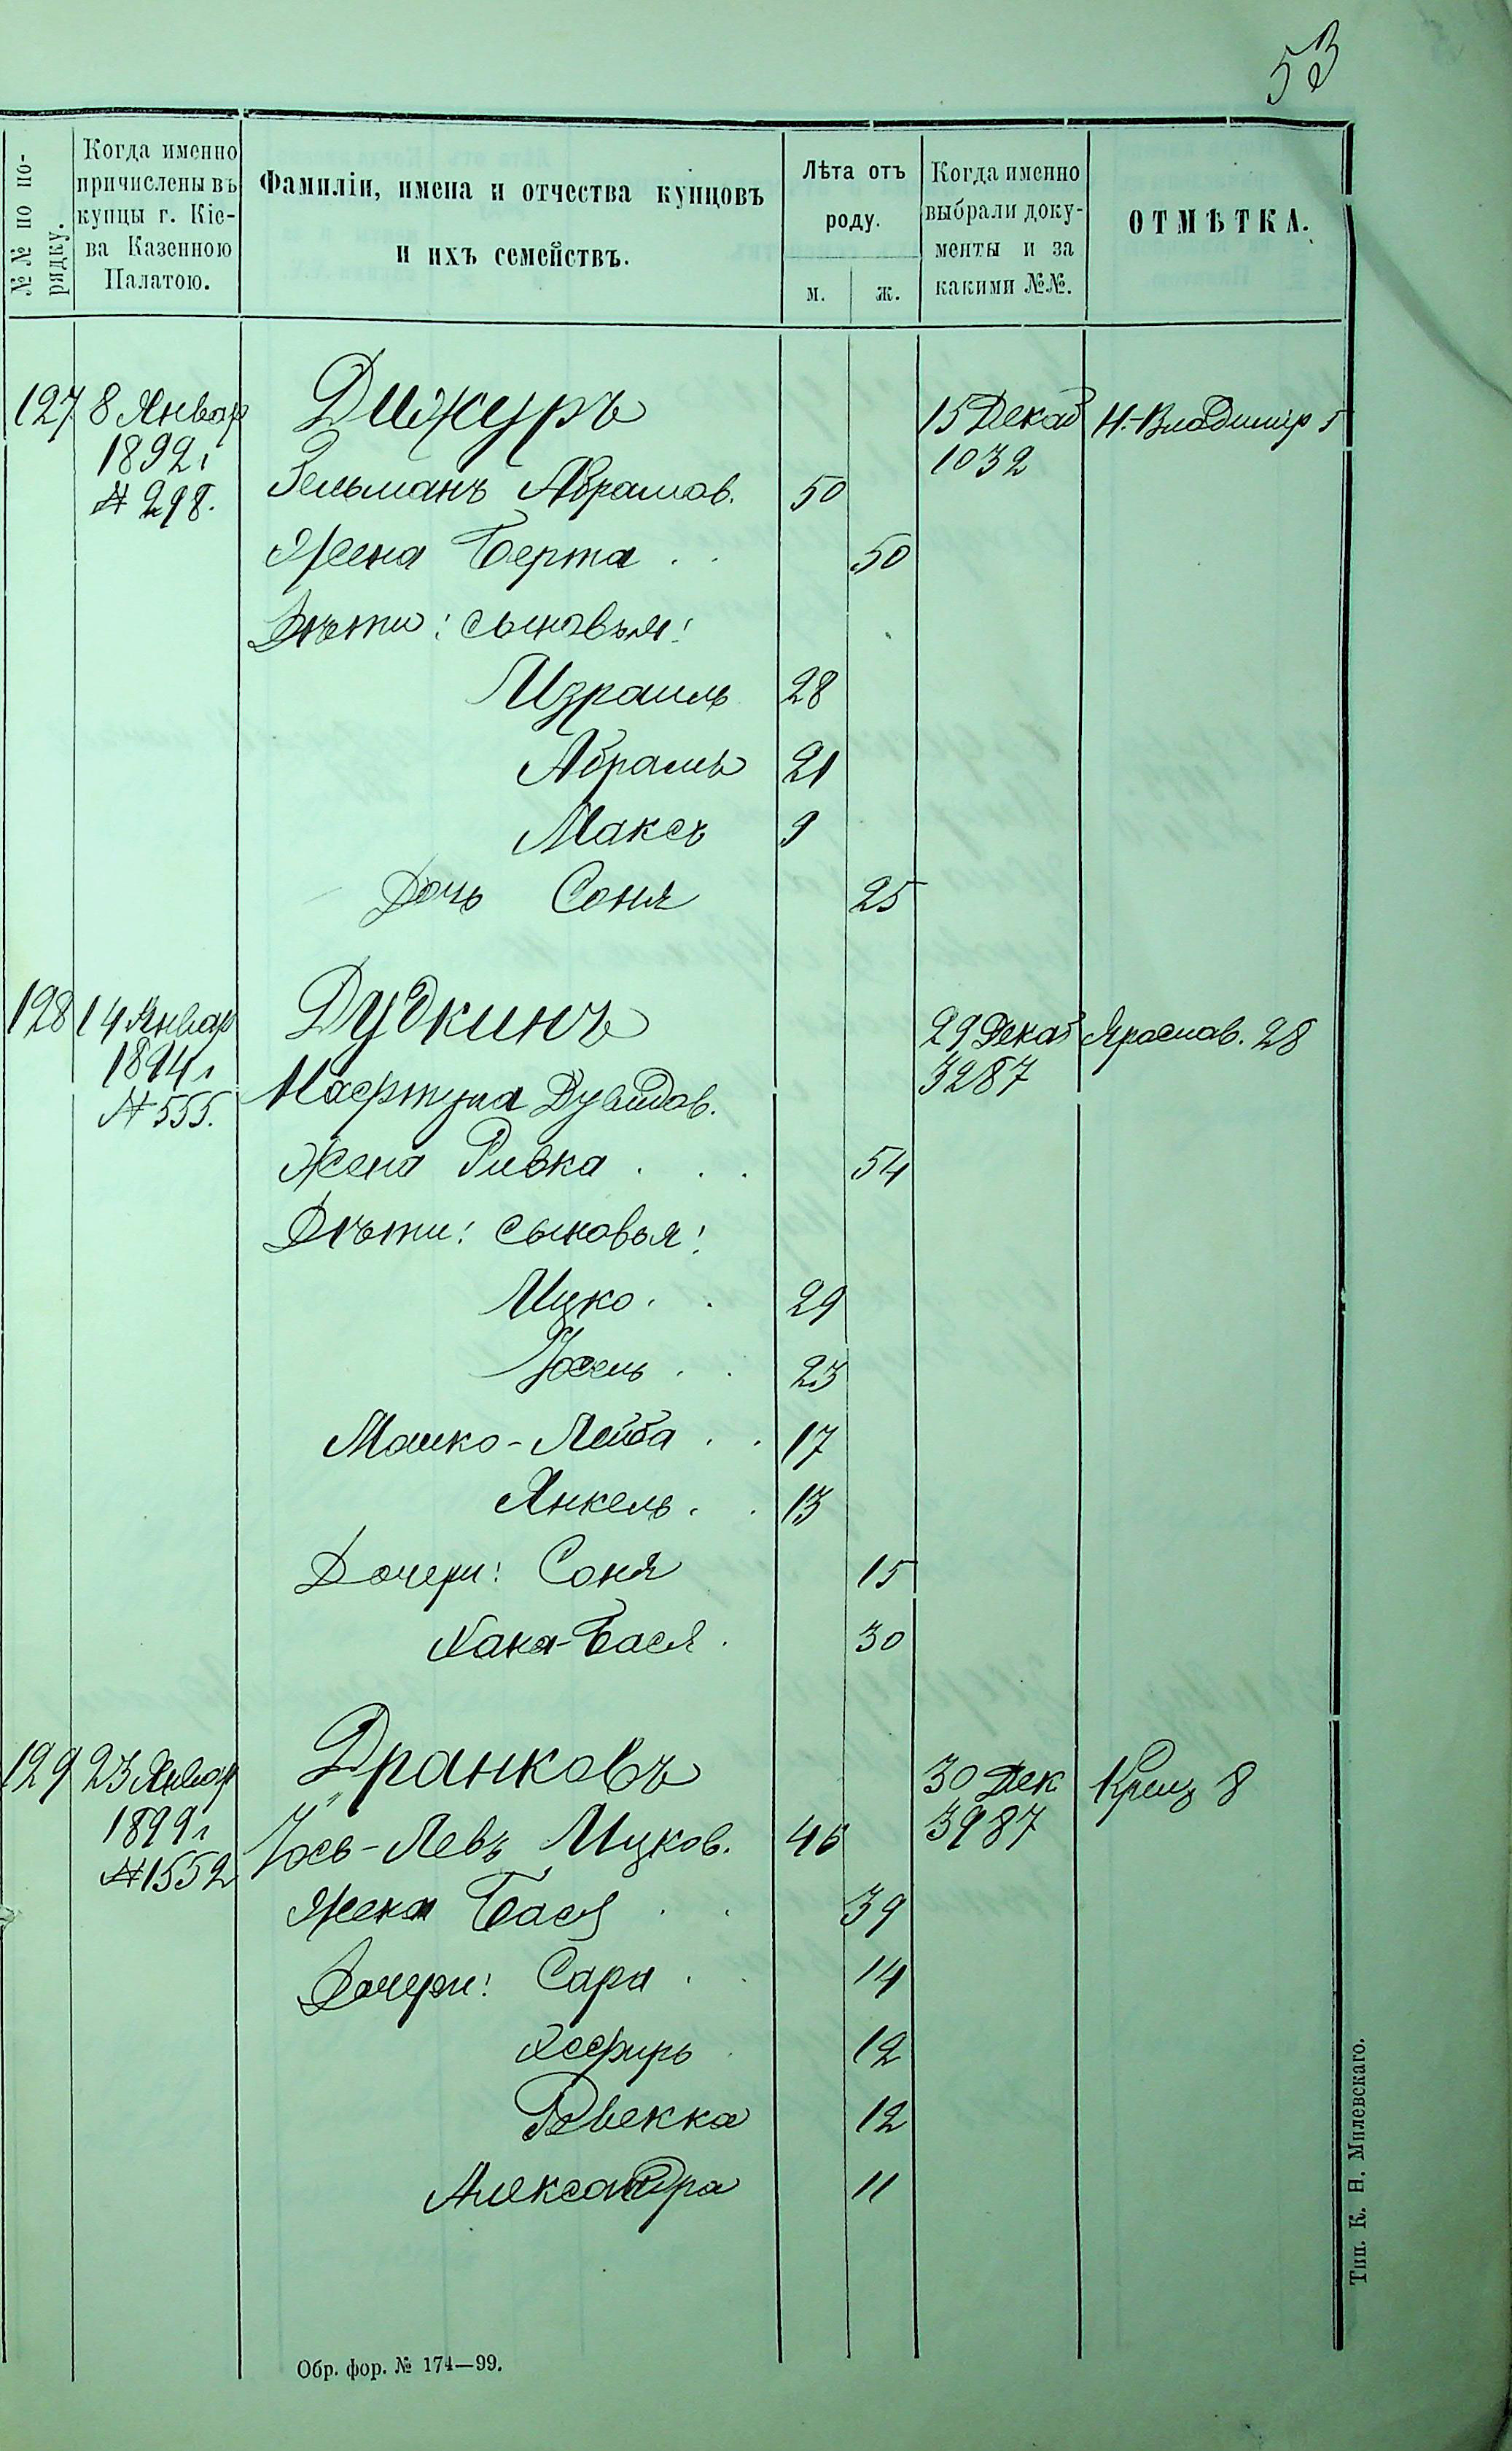 53
№№ по по-
рядку.
Когда именно
причислены въ
купцы г. Кіе-
ва Казенною
Палатою.
Фамиліи, имена и отчества купцовъ
и ихъ семействъ.
Лѣта отъ
роду.
м.
ж.
Когда именно
выбрали доку-
менты и за
какими №№.
ОТМѢТКА.
127 8 Январ Дижуръ 15 Декаб Н.-Владимир 5
1892 г 1032
№ 298. Зельманъ Абрамов. 50
Жена Берта . . 50
Дѣти: сыновья:
Израиль 28
Абрамъ 21
Максъ 9
Дочь Соня 25
128 14 Январ Дудкинъ 29 Декаб Ярослав. 28
1894 г 3287
№ 555. Дувидов.
Жена Ривка . . . 54
Дѣти: сыновья:
Ицко . . 29
Іосель . . 23
Мошко-Лейба . . 17
Янкель . . 13
Дочери: Соня 15
Хана-Бася . 30
129 23 Январ Дранковъ 30 Дек Крещ 8
1899 г 3987
№ 1552 Іось-Левъ Ицков. 46
Жена Бася . . 39
Дочери: Сара . . 14
Эсфирь . 12
Ревекка 12
Александра 11
Обр. фор. № 174—99.
Тип. К. Н. Милевскаго.